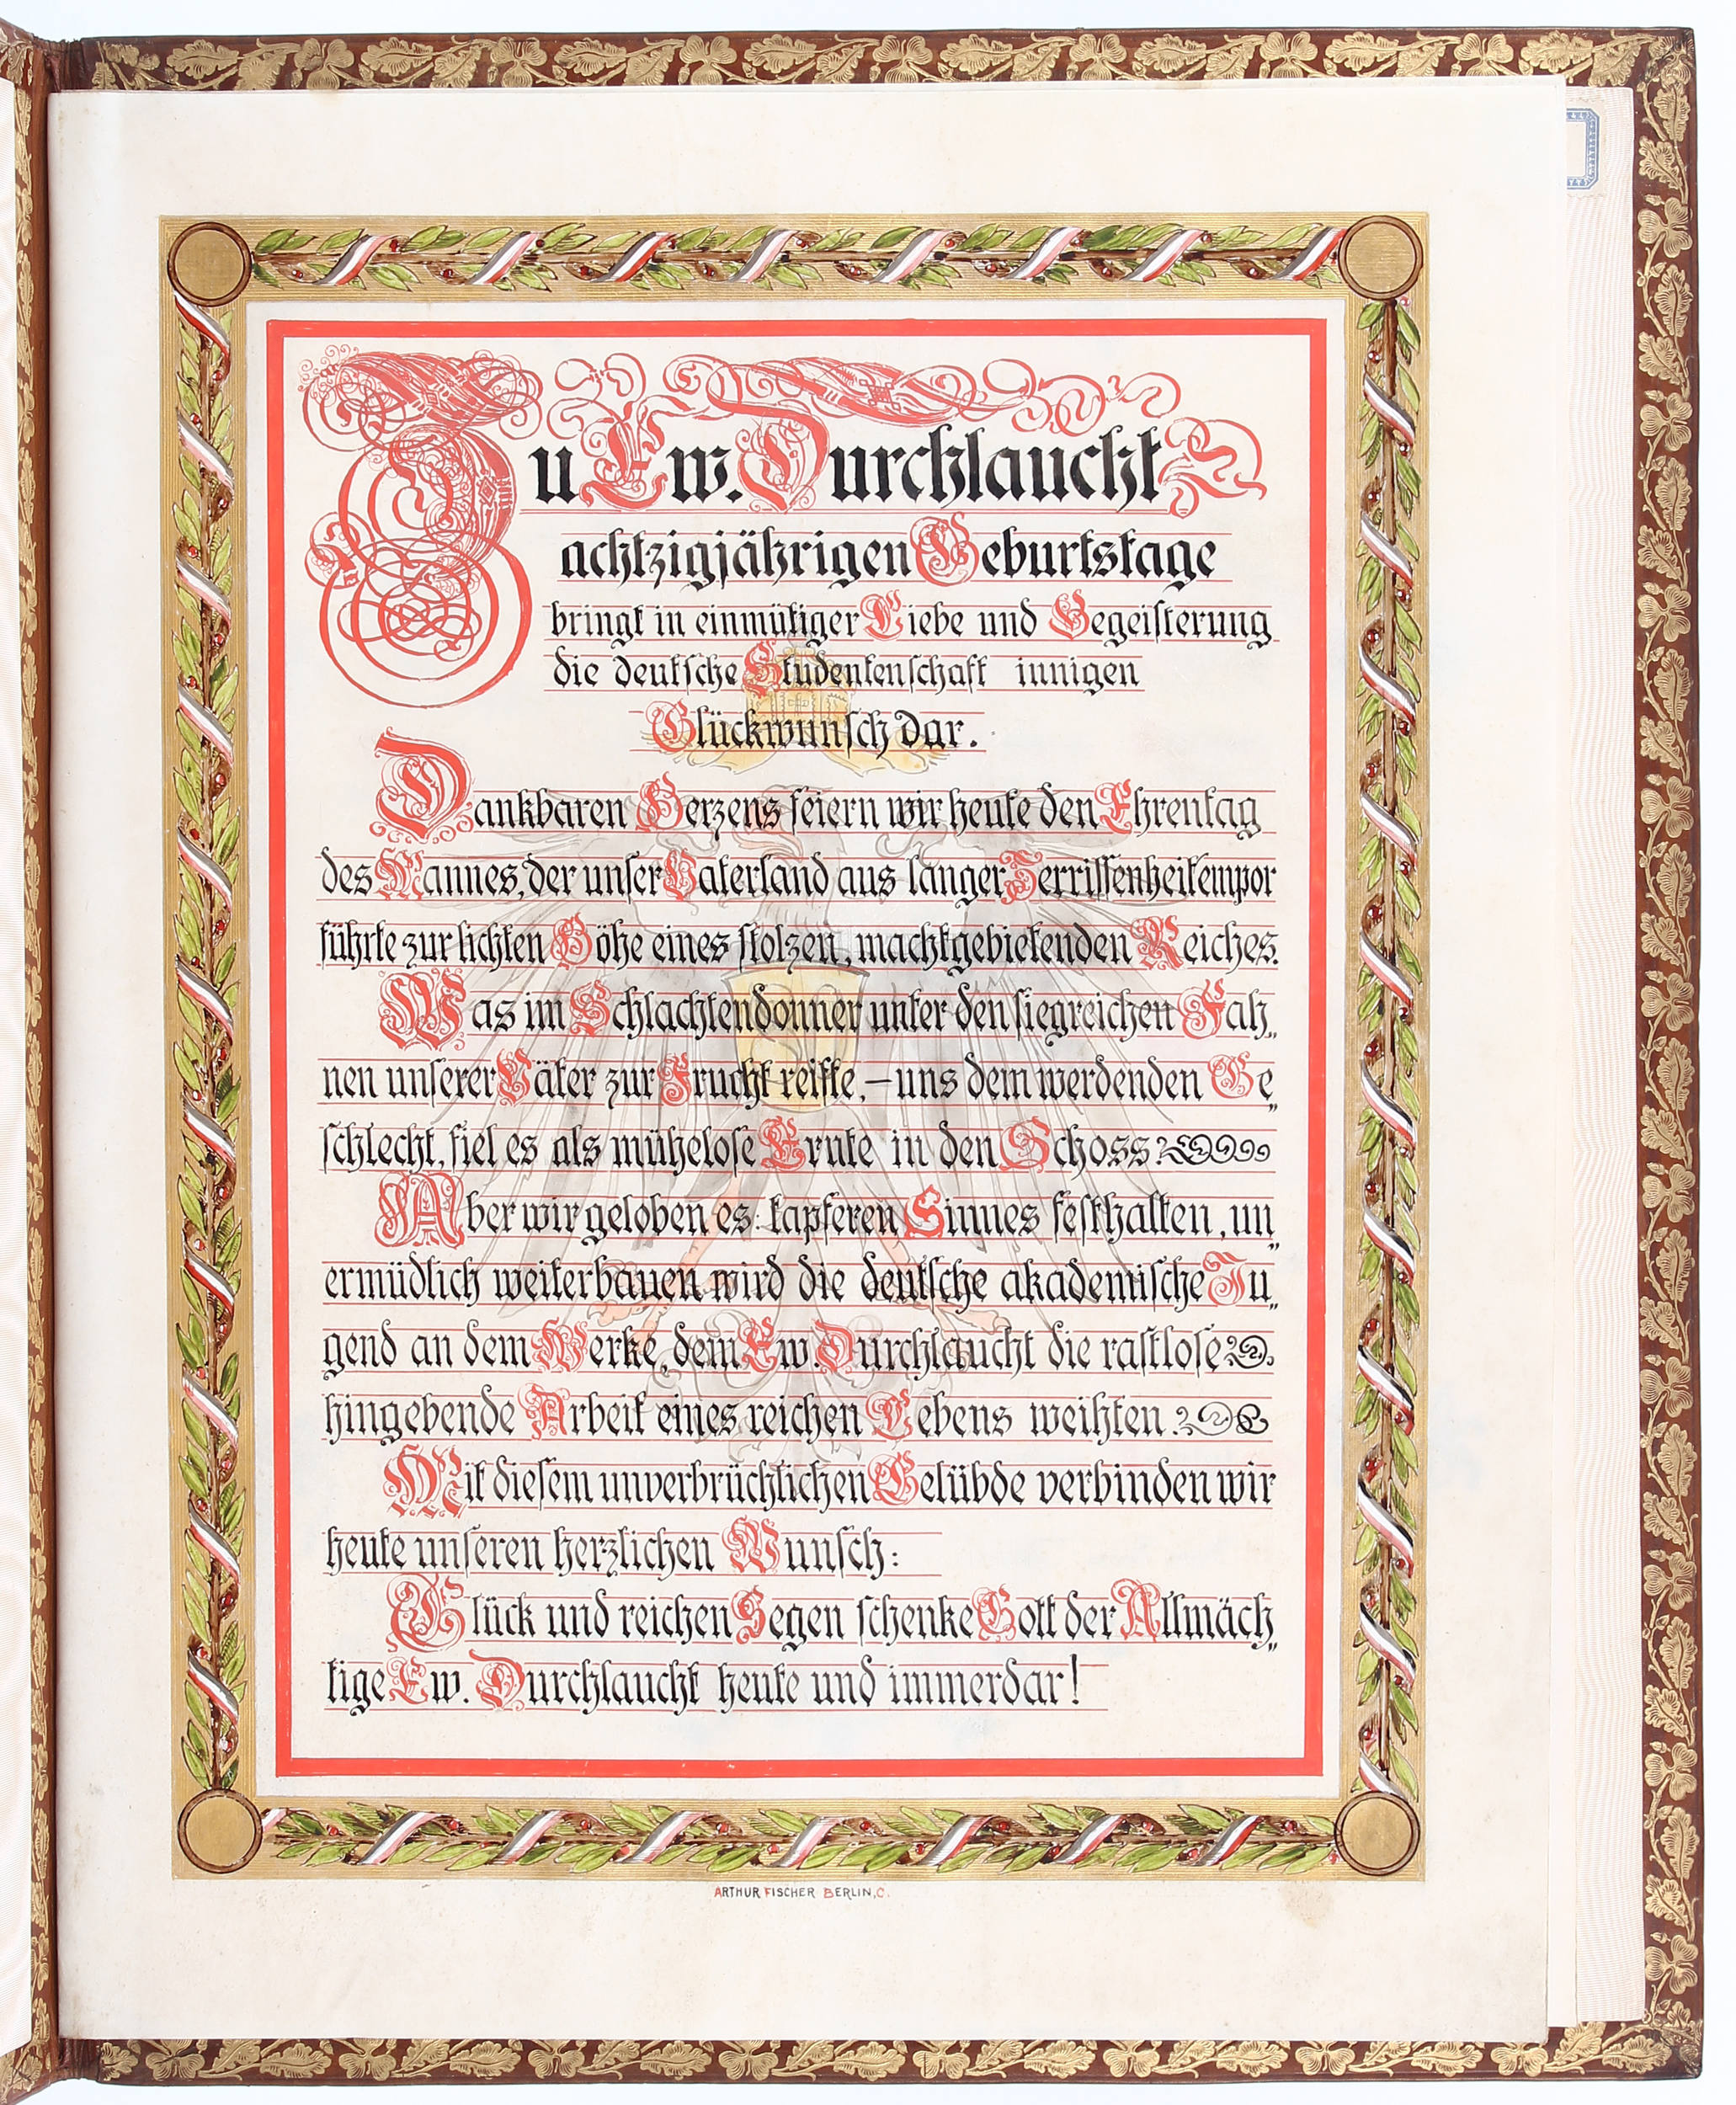 Zu Ew. Durchlaucht
achtzigjährigen Geburtstage
bringt in einmütiger Liebe und Begeisterung
die deutsche Studentenschaft innigen
Glückwunsch dar.
Dankbaren Herzens feiern wir heute den Ehrentag
des Mannes, der unser Vaterland aus langer Zerrissenheit empor
führte zur lichten Höhe eines stolzen, machtgebietenden Reiches.
Was im Schlachtendonner unter den siegreichen Fah„
nen unserer Väter zur Frucht reifte, – uns dem werdenden Ge„
schlecht, fiel es als mühelose Ernte in den Schoss
Aber wir geloben es: tapferen Sinnes festhalten, un„
ermüdlich weiterbauen wird die deutsche akademische Ju„
gend an dem Werke, dem Ew. Durchlaucht die rastlose
hingebende Arbeit eines reichen Lebens weihten.
Mit diesem unverbrüchlichen Gelübde verbinden wir
heute unseren herzlichen Wunsch:
Glück und reichen Segen schenke Gott der Allmäch„
tige Ew. Durchlaucht heute und immerdar!
ARTHUR FISCHER BERLIN, C.